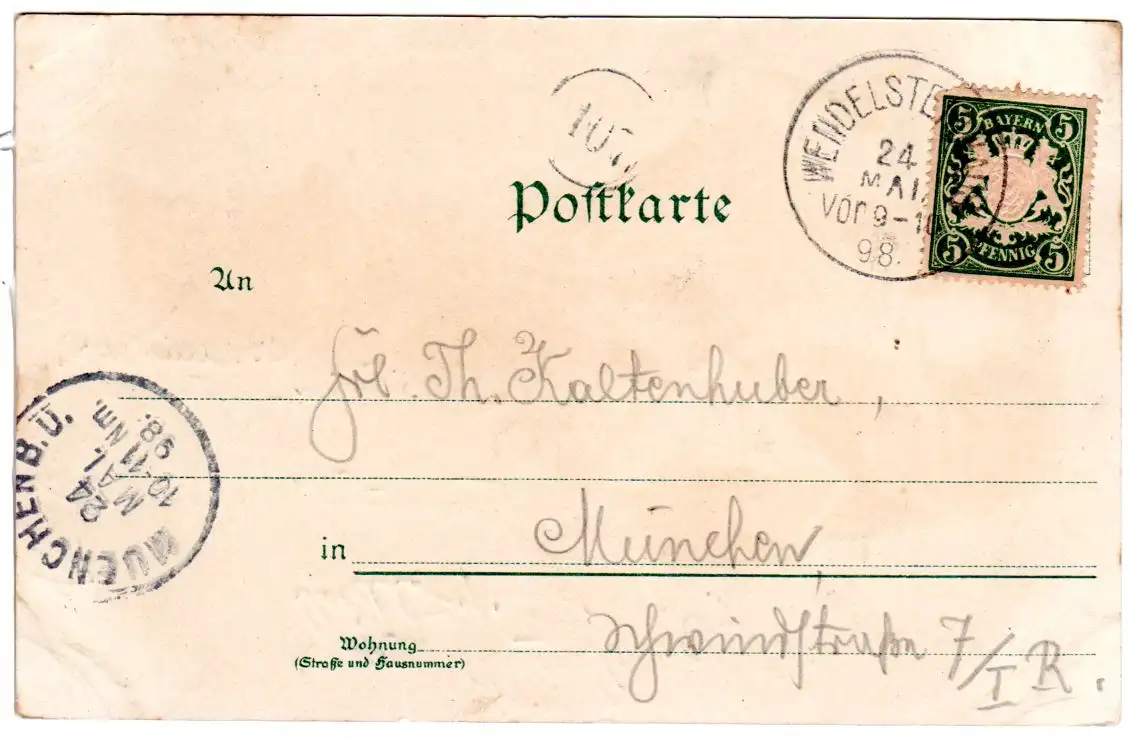 107
WENDELSTE
24
MAI
Vor 9-1
98.
5 BAYERN 5
5 PFENNIG 5
Postkarte
An
Frl. Th. Kaltenhuber,
MUENCHEN B.U.
24
MAI
10-11 Nm.
98.
in München,
Wohnung
(Straße und Hausnummer)
Schwindstraße 7/I R.